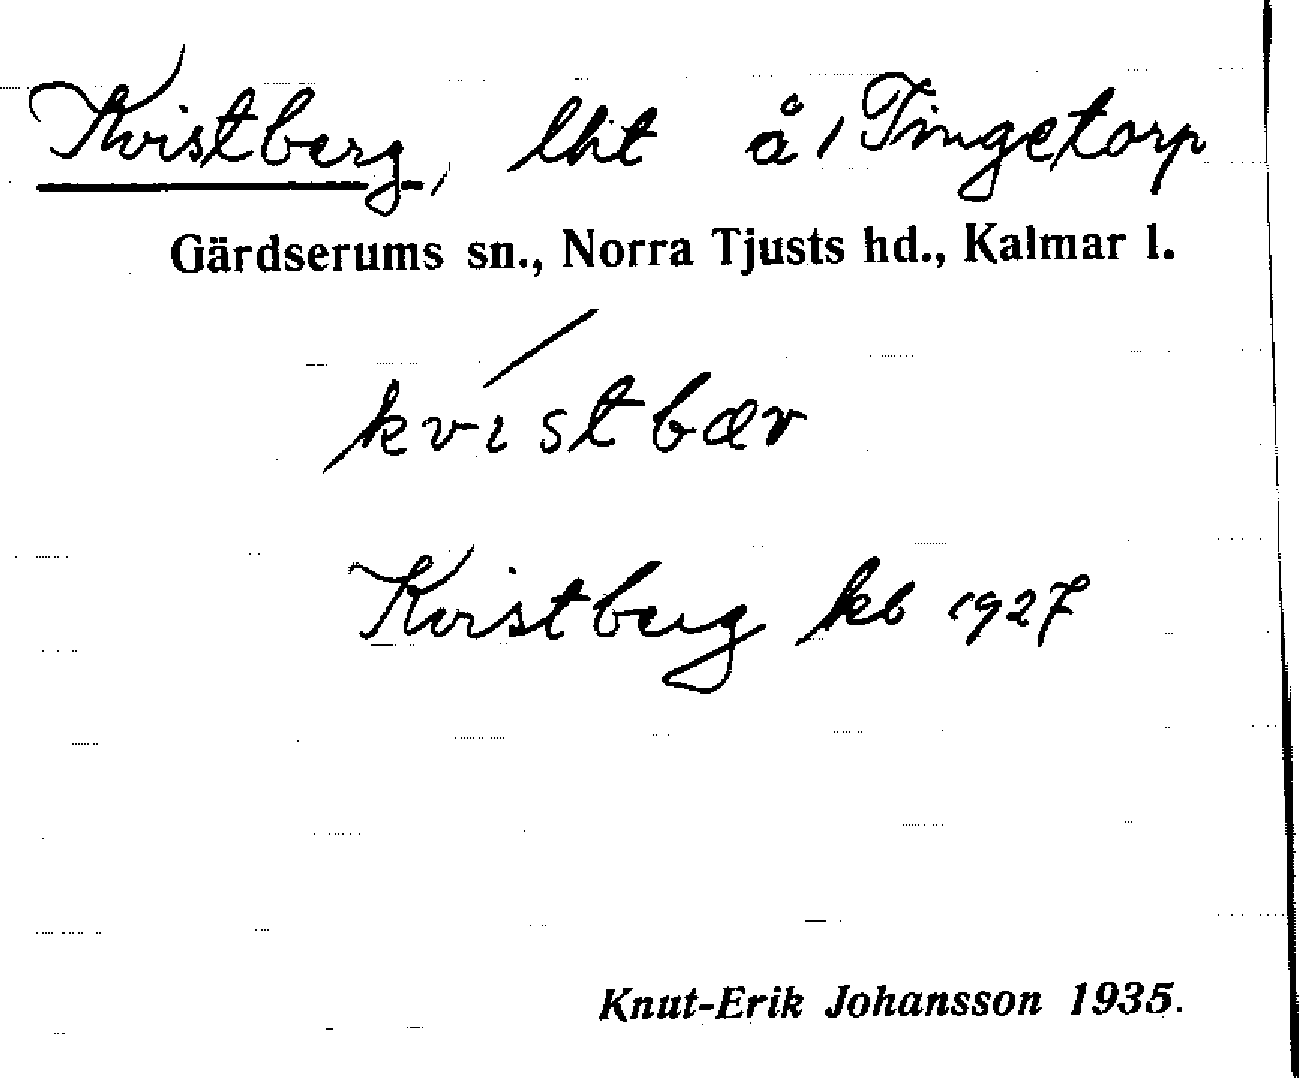 Kvistberg, lht å 1 Tingetorp
Gärdserums sn., Norra Tjusts hd., Kalmar l.
kvistbær
Kvistberg kb 1927
Knut-Erik Johansson 1935.